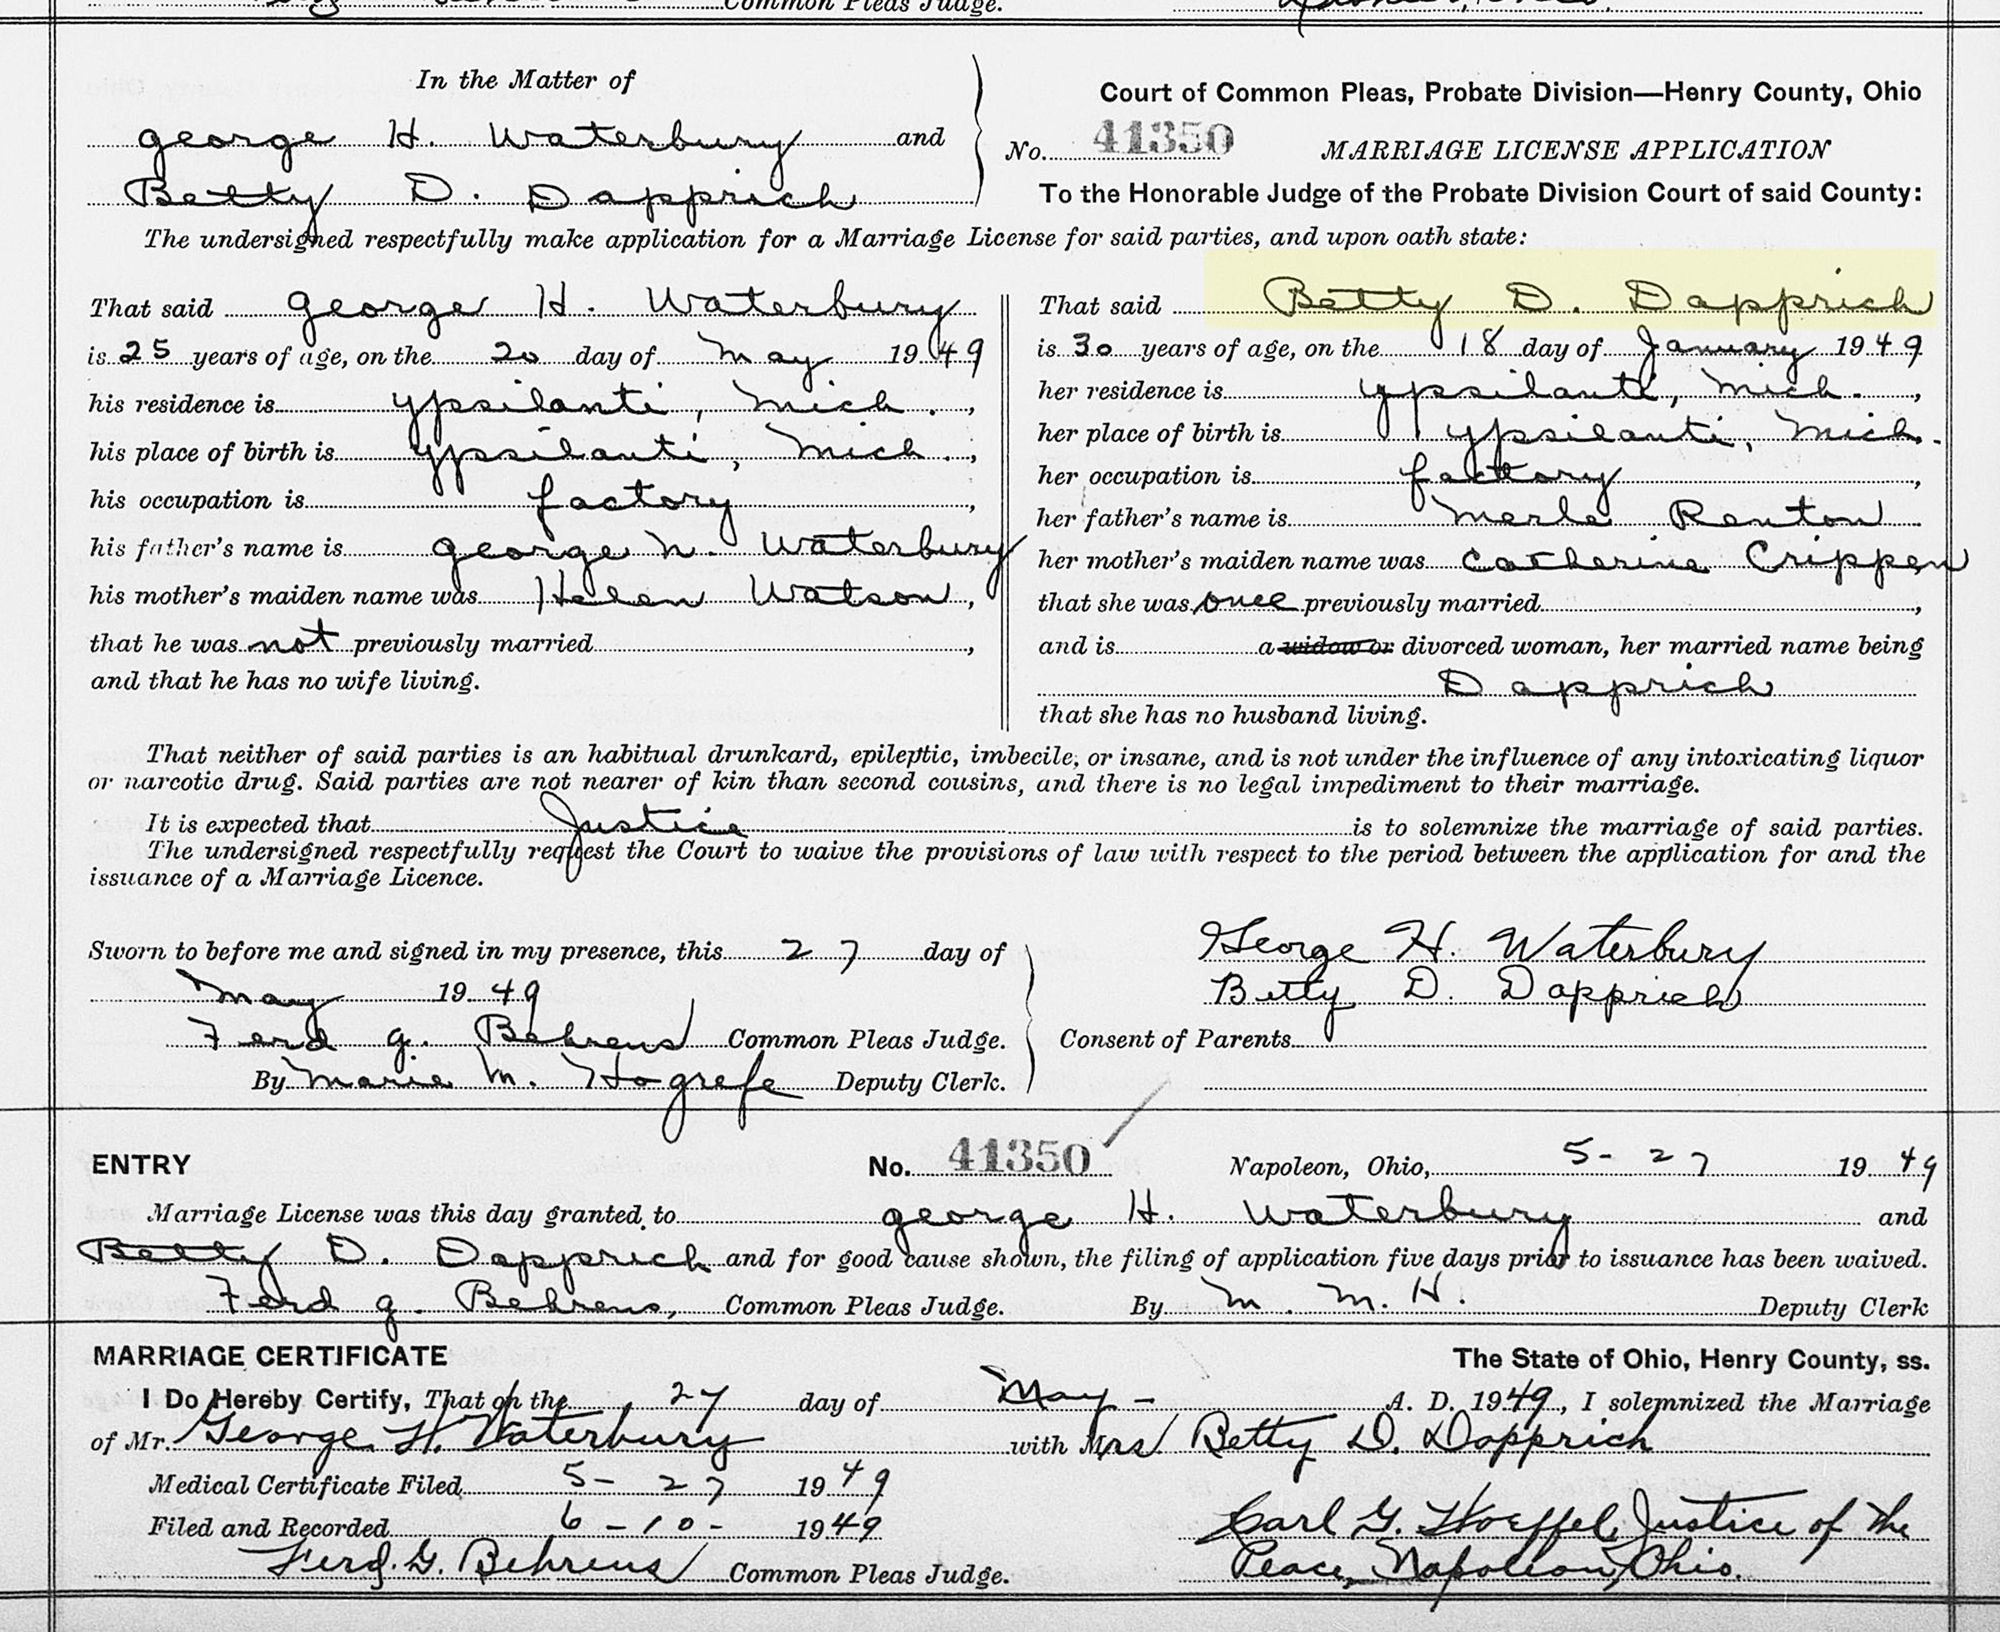 Common Pleas Judge.
In the Matter of
George H. Waterbury and
Betty D. Dapprich
Court of Common Pleas, Probate Division—Henry County, Ohio
No. 41350 MARRIAGE LICENSE APPLICATION
To the Honorable Judge of the Probate Division Court of said County:
The undersigned respectfully make application for a Marriage License for said parties, and upon oath state:
That said George H. Waterbury
is 25 years of age, on the 20 day of May 1949
his residence is Ypsilanti, Mich.,
his place of birth is Ypsilanti, Mich.,
his occupation is factory,
his father's name is George N. Waterbury
his mother's maiden name was Helen Watson,
that he was not previously married,
and that he has no wife living.
That said Betty D. Dapprich
is 30 years of age, on the 18 day of January 1949
her residence is Ypsilanti, Mich.,
her place of birth is Ypsilanti, Mich.
her occupation is factory,
her father's name is Merle Renton
her mother's maiden name was Catherine Crippen
that she was once previously married,
and is a widow or divorced woman, her married name being
Dapprich
that she has no husband living.
That neither of said parties is an habitual drunkard, epileptic, imbecile, or insane, and is not under the influence of any intoxicating liquor
or narcotic drug. Said parties are not nearer of kin than second cousins, and there is no legal impediment to their marriage.
It is expected that Justice is to solemnize the marriage of said parties.
The undersigned respectfully request the Court to waive the provisions of law with respect to the period between the application for and the
issuance of a Marriage Licence.
Sworn to before me and signed in my presence, this 27 day of
May 1949
Ferd G. Behrens Common Pleas Judge.
By Marie M. Hogrefe Deputy Clerk.
George H. Waterbury
Betty D. Dapprich
Consent of Parents
ENTRY No. 41350 Napoleon, Ohio, 5-27 1949
Marriage License was this day granted to George H. Waterbury and
Betty D. Dapprich and for good cause shown, the filing of application five days prior to issuance has been waived.
Ferd G. Behrens, Common Pleas Judge. By M. M. H. Deputy Clerk
MARRIAGE CERTIFICATE The State of Ohio, Henry County, ss.
I Do Hereby Certify, That on the 27 day of May - A. D. 1949, I solemnized the Marriage
of Mr. George H. Waterbury with Mrs Betty D. Dapprich
Medical Certificate Filed 5-27 1949
Filed and Recorded 6-10- 1949
Ferd. G. Behrens Common Pleas Judge.
Carl G. Hoeffel, Justice of the
Peace, Napoleon, Ohio.